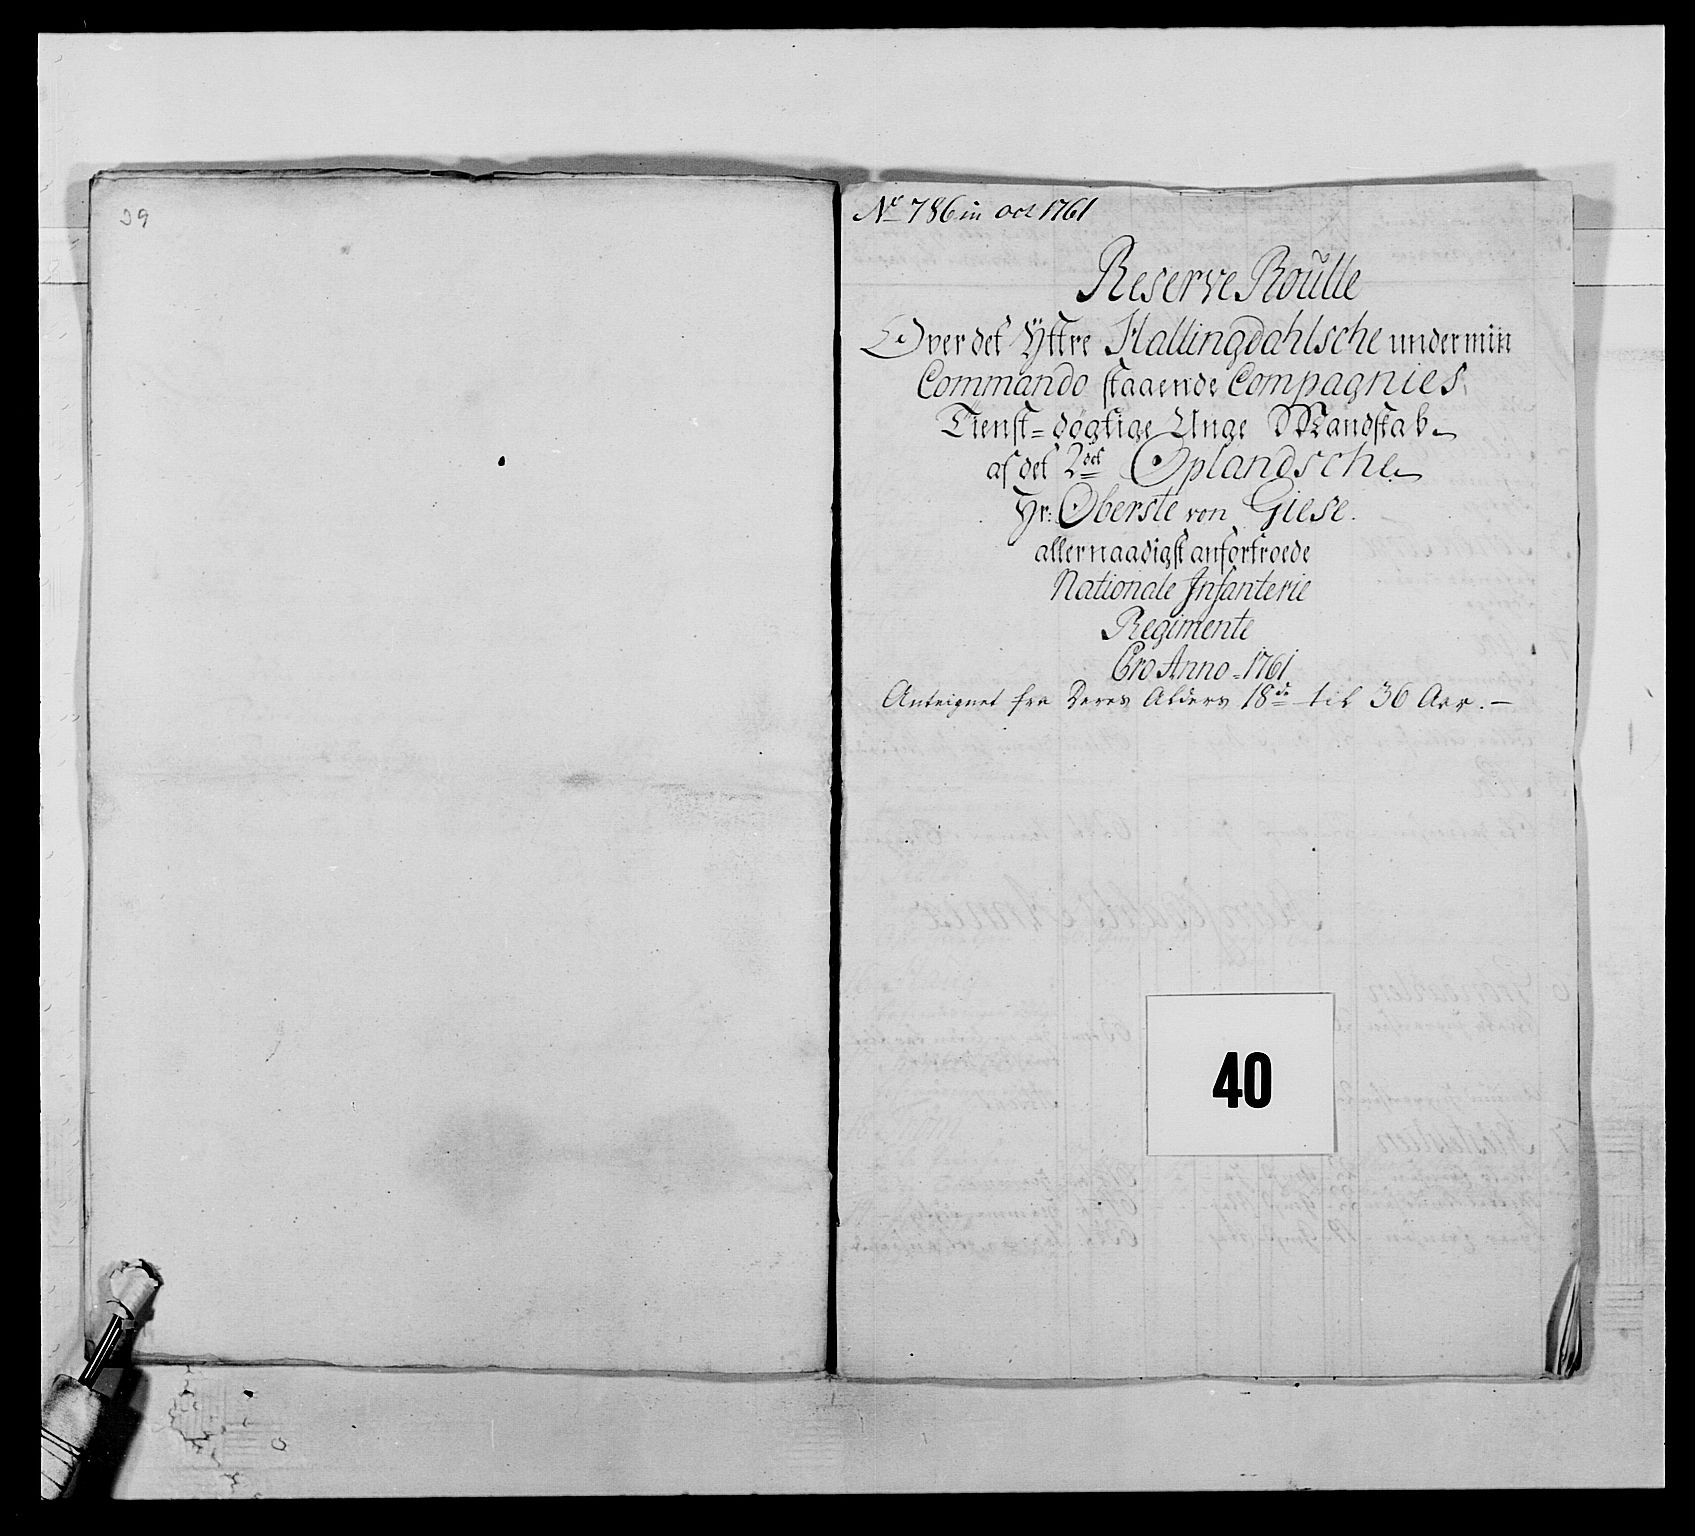 39
No 786 in oct 1761
Reserve Roulle
Over det Yttre Hallingdahlsche under min
Commando staaende Compagnies
Tienst=døgtige Unge Mandskab
af det 2det Oplandsche
Hr: Oberste von Giese.
allernaadigst anfortroede
Nationale Infanterie
Regimente
Pro Anno 1761
Anteignet fra Deres Alders 18de til 36 Aar.
40